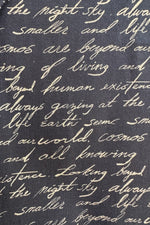 the night sky always
smaller and life
cosmos are beyond our
ing of living and
beyond human existence
always gazing at the
life Earth seems small
and our world. Cosmos
and all knowing
istence Looking beyond
the night sky always
smaller and life
cosmos are beyond our